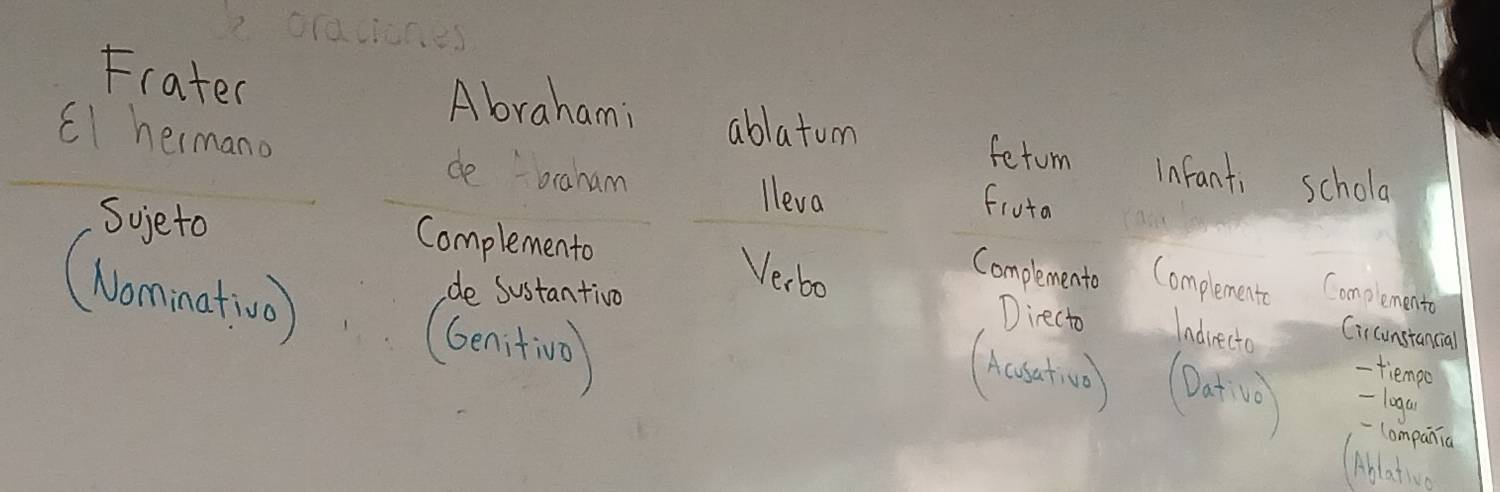 de oraciones
Frater Abrahami ablatum fetum Infanti schola
El hermano de Abraham lleva fruta
Sujeto Complemento de Sustantivo Verbo Complemento Directo Complemento Indirecto Complemento Circunstancial
- tiempo
- lugar
- Compañia
(Nominativo) (Genitivo) (Acusativo) (Dativo) (Ablativo